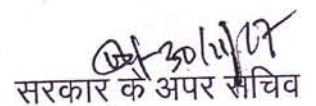 30/11/07
सरकार के अपर सचिव